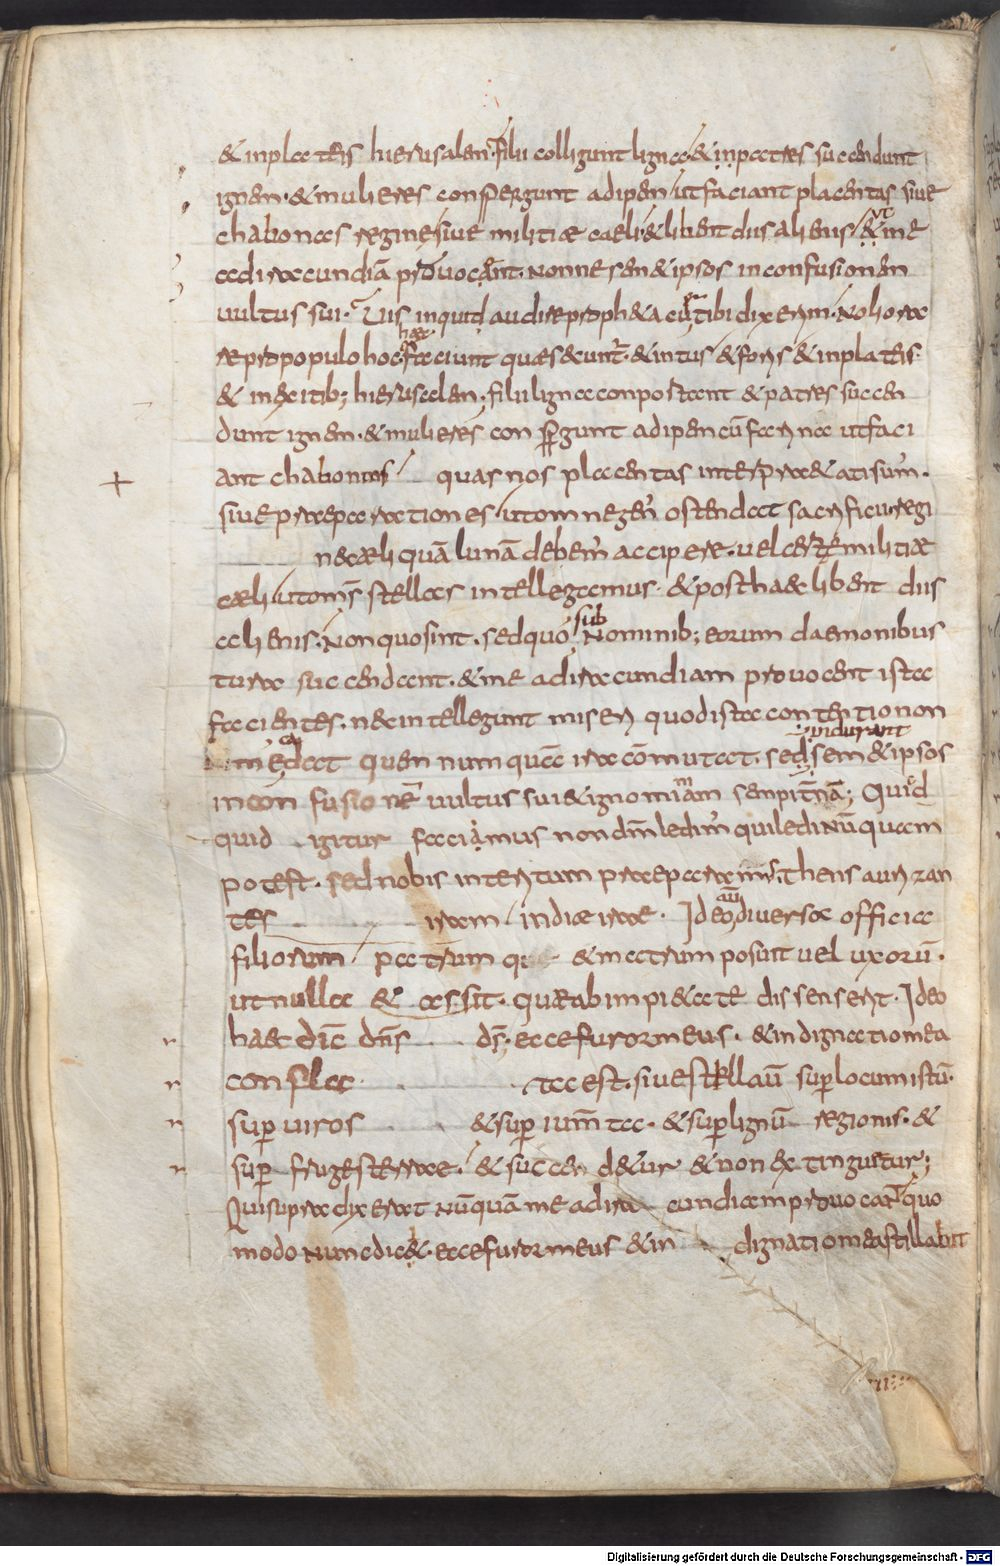 & inplateis hierusalem. filii colligunt ligna & inpatres succendunt
ignem. & mulieres conspergunt adipem ut faciant placentas siue
chabonas regine siue militiae caeli & libent diis alienis & ut me
ad iracundiā prouocent. Nonne sem & ipsos in confusionem
uultus sui. Uis inquid audire propheta cur tibi dixerim. Noli ora
re pro populo hoc. haec faciunt quae secuntr̄. & intus & foris & inplateis.
& in exitib; hierusalem. filii ligna conportant & patres succen
dunt ignem. & mulieres conspergunt adipem cū farina ut faci
ant chabonas quas nos placentas interpraetati sum̄.
siue praeparationes ut omne gen̄ ostendat sacrificii regi
ne caeli quā lunā debem̄ accipere. uel certe militiae
caeli ut om̄s stellas intellegamus. & post haec libent diis
alienis. Non quo sint. sed quo sub Nominib; eorum daemonibus
turae succendant. & me ad iracundiam prouocent ista
facientes. nec intellegunt miseri quod ista contentio non
me laedat quem numquā ira cōmutat. sed sem & ipsos
induunt
in confusionē uultus sui & ignominiam sempit̄nā; Quid
quid igitur faciamus non dm̄ ledim̄ qui ledi Nūquam
potest. sed nobis interitum praeparam̄. thensaurizan
tes iram in die irae. Ideo aū diuersa officia
filiorum patrum & matrum posuit uel uxorū.
ut nulla & as sit. quae ab impi&ate dissenserit. Ideo
haec dic̄ dn̄s ds̄. ecce furor meus. & indignatio mea
confla ta est. siue stillauī sup locum istū.
sup uiros & sup ium̄ta. & sup lignū regionis. &
sup fruges terrae. & succend&ur & non extinguetur;
Qui supra dixerat Nūquā me ad ira cundiam prouocant quo
modo Nunc dic&. ecce furor meus & in dignatio mea stillabit
Digitalisierung gefördert durch die Deutsche Forschungsgemeinschaft - DFG